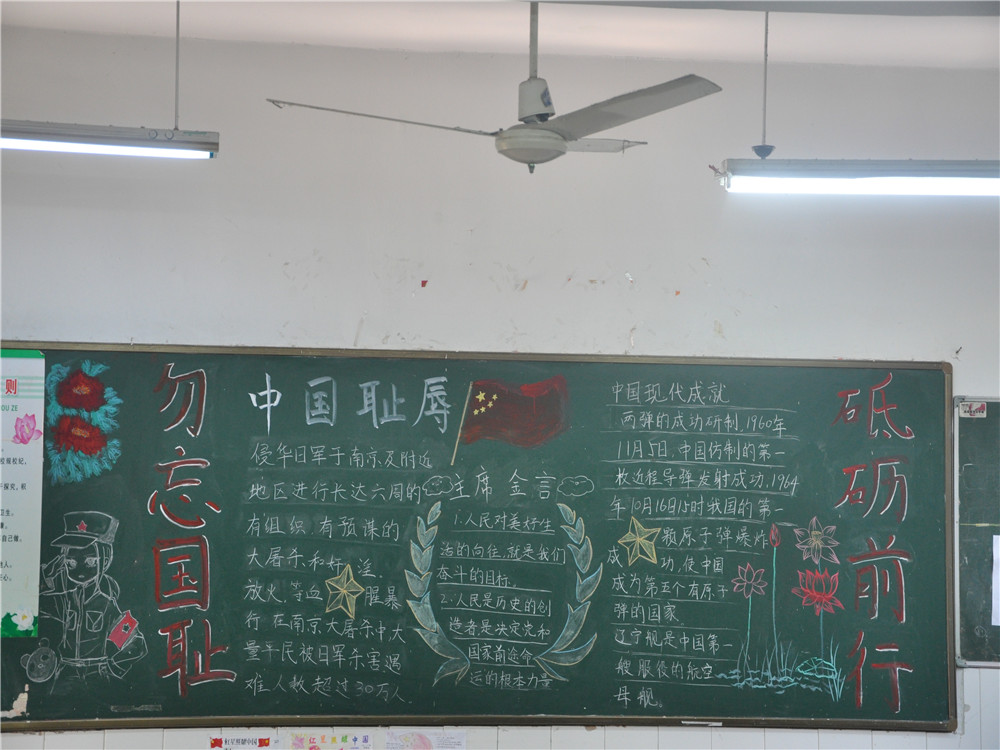 则
勿忘国耻
中国耻辱
侵华日军于南京及附近
地区进行长达六周的
有组织、有预谋的
大屠杀和奸淫、
放火、等血腥暴
行在南京大屠杀中大
量平民被日军杀害遇
难人数超过30万人
主席金言
1.人民对美好生
活的向往,就是我们
奋斗的目标。
2.人民是历史的创
造者,是决定党和
国家前途命
运的根本力量
中国现代成就
两弹的成功研制,1960年
11月5日,中国仿制的第一
枚近程导弹发射成功,1964
年10月16日15时我国的第一
颗原子弹爆炸
成功,使中国
成为第五个有原子
弹的国家.
辽宁舰是中国第一
艘服役的航空
母舰。
砥砺前行